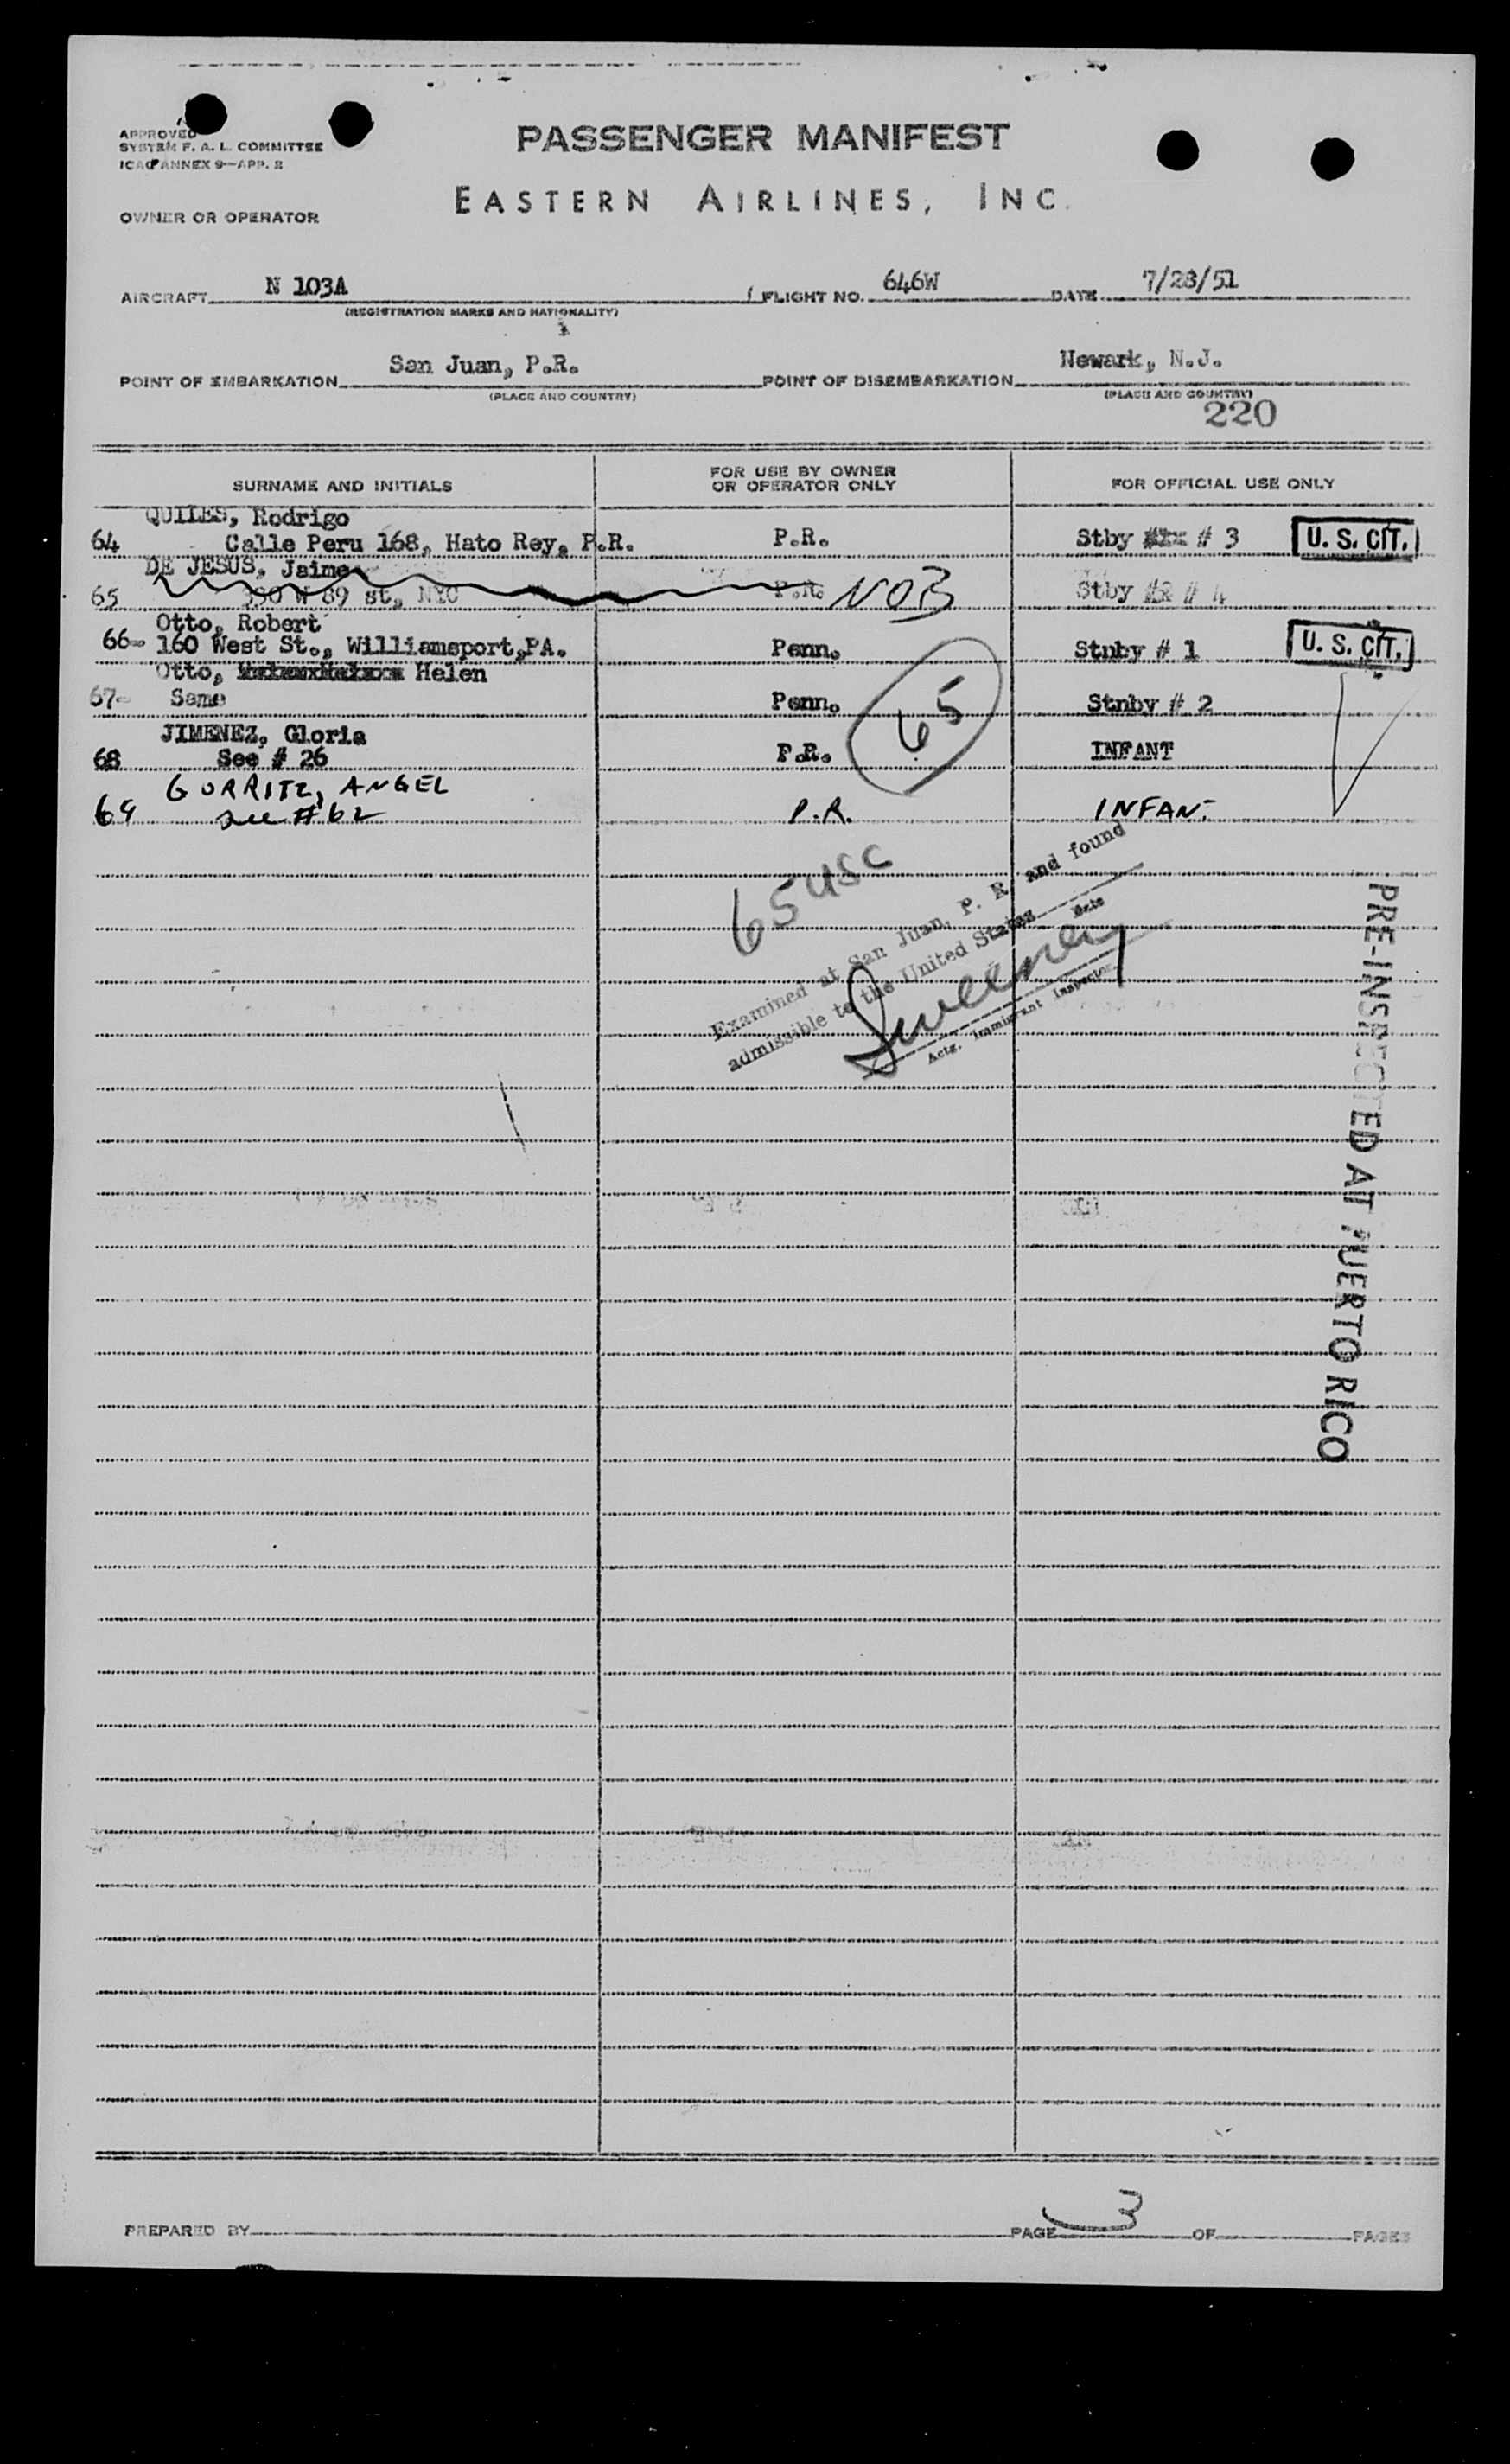 APPROVED
SYSTEM F. A. L. COMMITTEE
ICAO ANNEX 9—APP. 2
PASSENGER MANIFEST
EASTERN AIRLINES, INC.
OWNER OR OPERATOR
AIRCRAFT N 103A FLIGHT NO. 646W DATE 7/28/51
(REGISTRATION MARKS AND NATIONALITY)
POINT OF EMBARKATION San Juan, P.R. POINT OF DISEMBARKATION Newark, N.J.
(PLACE AND COUNTRY) (PLACE AND COUNTRY)
220
SURNAME AND INITIALS FOR USE BY OWNER OR OPERATOR ONLY FOR OFFICIAL USE ONLY
QUILES, Rodrigo
64 Calle Peru 168, Hato Rey, P.R. P.R. Stby # 3 U. S. CIT.
DE JESUS, Jaime
65 W 89 st, NYC P.R. NOB Stby # 4
Otto, Robert
66- 160 West St., Williamsport,PA. Penn. Stnby # 1 U. S. CIT.
Otto, Helen
67- Same Penn. Stnby # 2
65
JIMENEZ, Gloria
68 See # 26 P.R. INFANT
GORRITZ, ANGEL
69 see #62 P.R. INFANT
65 USC
Examined at San Juan, P. R. and found
admissible to the United States
Date
Sweeney
Actg. Immigrant Inspector
PRE-INSPECTED AT PUERTO RICO
PREPARED BY PAGE 3 OF PAGES